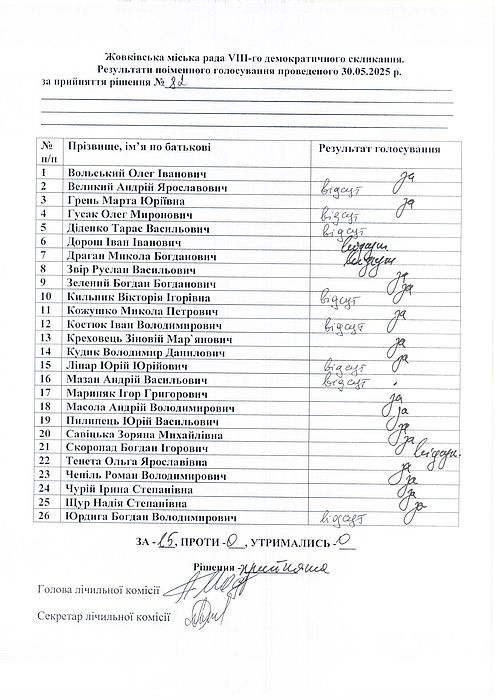 Жовківська міська рада VIII-го демократичного скликання.
Результати поіменного голосування проведеного 30.05.2025 р.
за прийняття рішення № 82
№ п/п Прізвище, ім’я по батькові Результат голосування
1 Вольський Олег Іванович за
2 Великий Андрій Ярославович відсут
3 Грень Марта Юріївна за
4 Гусак Олег Миронович відсут
5 Діденко Тарас Васильович відсут
6 Дорош Іван Іванович відсут
7 Драган Микола Богданович відсут
8 Звір Руслан Васильович за
9 Зелений Богдан Богданович за
10 Кильник Вікторія Ігорівна відсут
11 Кожушко Микола Петрович за
12 Костюк Іван Володимирович відсут
13 Креховець Зіновій Мар`янович за
14 Кудик Володимир Данилович за
15 Лінар Юрій Юрійович відсут
16 Мазан Андрій Васильович відсут
17 Мариняк Ігор Григорович за
18 Масола Андрій Володимирович за
19 Пилипець Юрій Васильович за
20 Савіцька Зоряна Михайлівна за
21 Скоропад Богдан Ігорович відсут.
22 Тенета Ольга Ярославівна за
23 Чепіль Роман Володимирович за
24 Чурій Ірина Степанівна за
25 Щур Надія Степанівна за
26 Юрдига Богдан Володимирович відсут
ЗА -15, ПРОТИ -0, УТРИМАЛИСЬ -0
Рішення -прийнята
Голова лічильної комісії
Секретар лічильної комісії